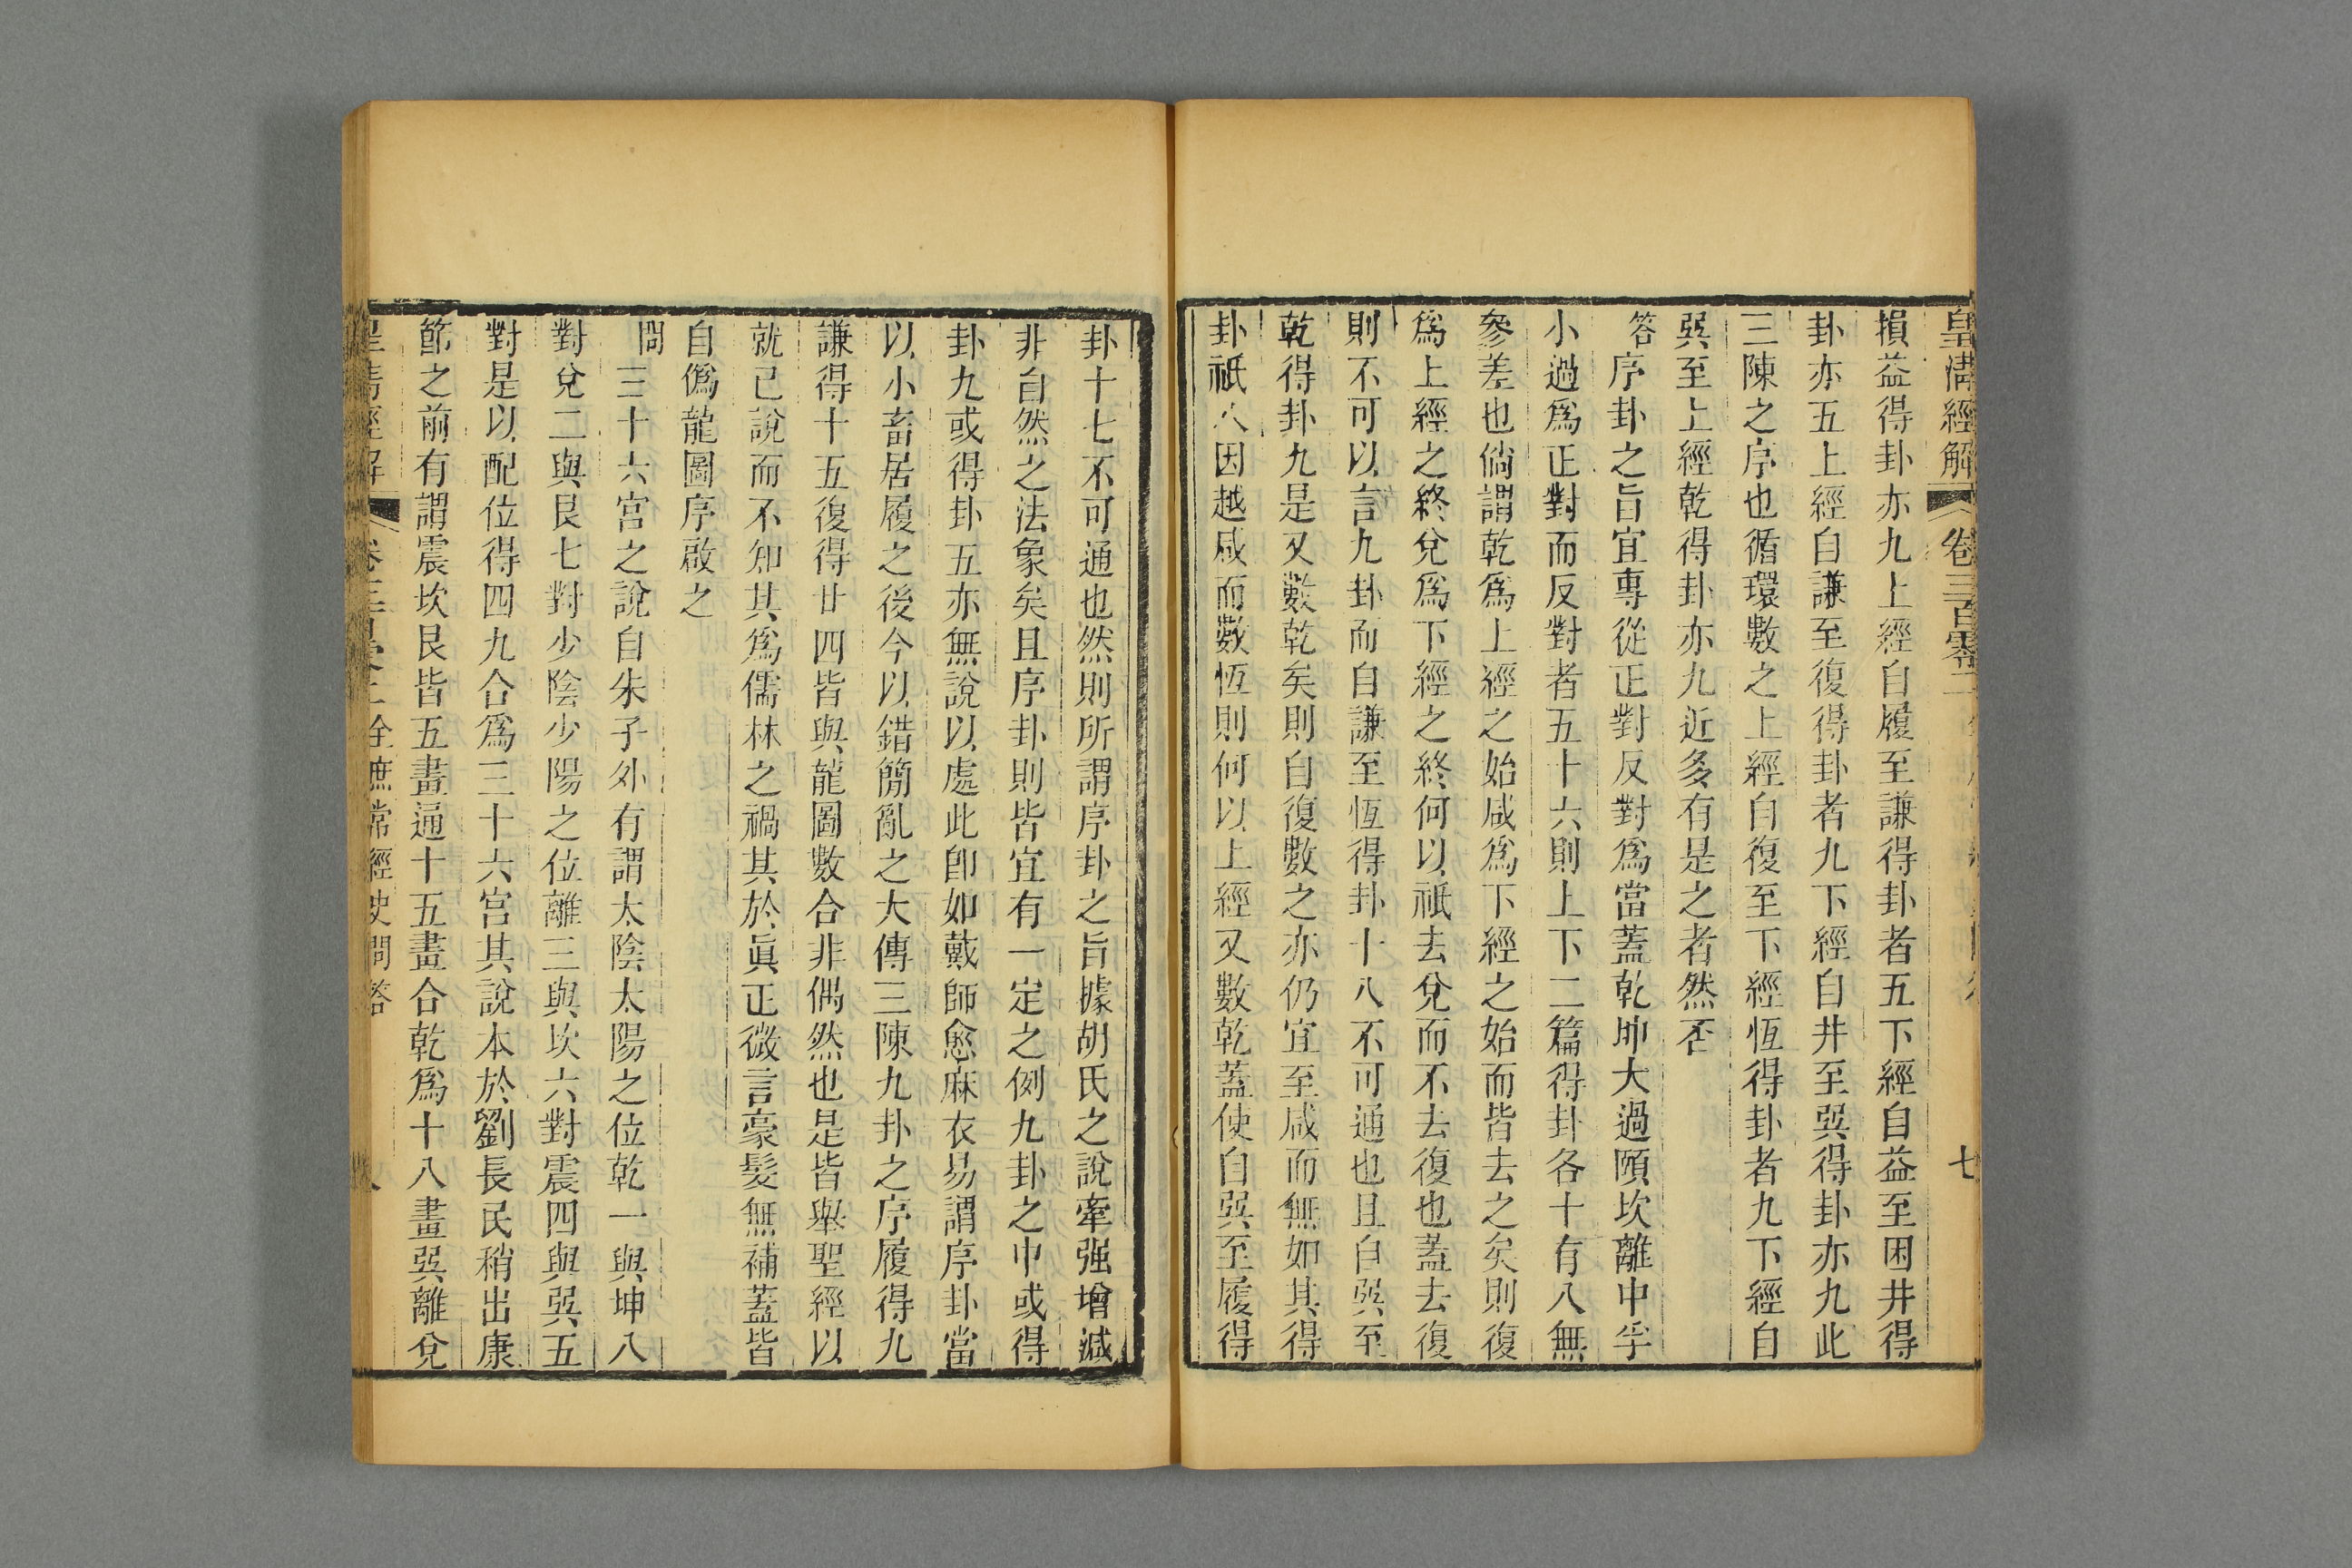 皇清經解 卷三百零二 七
損益得卦亦九上經自履至謙得卦者五下經自益至困井得
卦亦五上經自謙至復得卦者九下經自井至巽得卦亦九此
三陳之序也循環數之上經自復至下經恆得卦者九下經自
巽至上經乾得卦亦九近多有是之者然否
答序卦之旨宜專從正對反對爲當蓋乾坤大過頤坎離中孚
小過爲正對而反對者五十六則上下二篇得卦各十有八無
參差也倘謂乾爲上經之始咸爲下經之始而皆去之矣則復
爲上經之終兌爲下經之終何以祇去兌而不去復也蓋去復
則不可以言九卦而自謙至恆得卦十八不可通也且自巽至
乾得卦九是又數乾矣則自復數之亦仍宜至咸而無如其得
卦祇八因越咸而數恆則何以上經又數乾蓋使自巽至履得
卦十七不可通也然則所謂序卦之旨據胡氏之說牽强增減
非自然之法象矣且序卦則皆宜有一定之例九卦之中或得
卦九或得卦五亦無說以處此卽如戴師愈麻衣易謂序卦當
以小畜居履之後今以錯簡亂之大傳三陳九卦之序履得九
謙得十五復得廿四皆與龍圖數合非偶然也是皆舉聖經以
就已說而不知其爲儒林之禍其於眞正微言豪髮無補蓋皆
自僞龍圖序啟之
問三十六宮之說自朱子外有謂太陰太陽之位乾一與坤八
對兌二與艮七對少陰少陽之位離三與坎六對震四與巽五
對是以配位得四九合爲三十六宮其說本於劉長民稍出康
節之前有謂震坎艮皆五畫通十五畫合乾爲十八畫巽離兌
皇清經解 全庶常經史問答 八